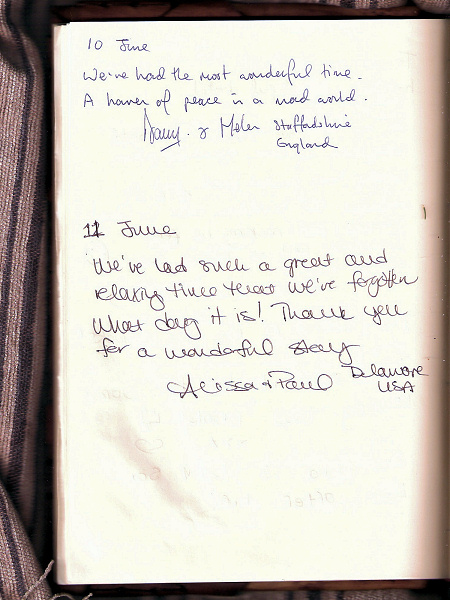 10 June
We've had the most wonderful time.
A haven of peace in a mad world.
& Helen Staffordshire
England
11 June
We've had such a great and
relaxing time that we've forgotten
what day it is! Thank you
for a wonderful stay
Alissa & Paul Delaware
USA